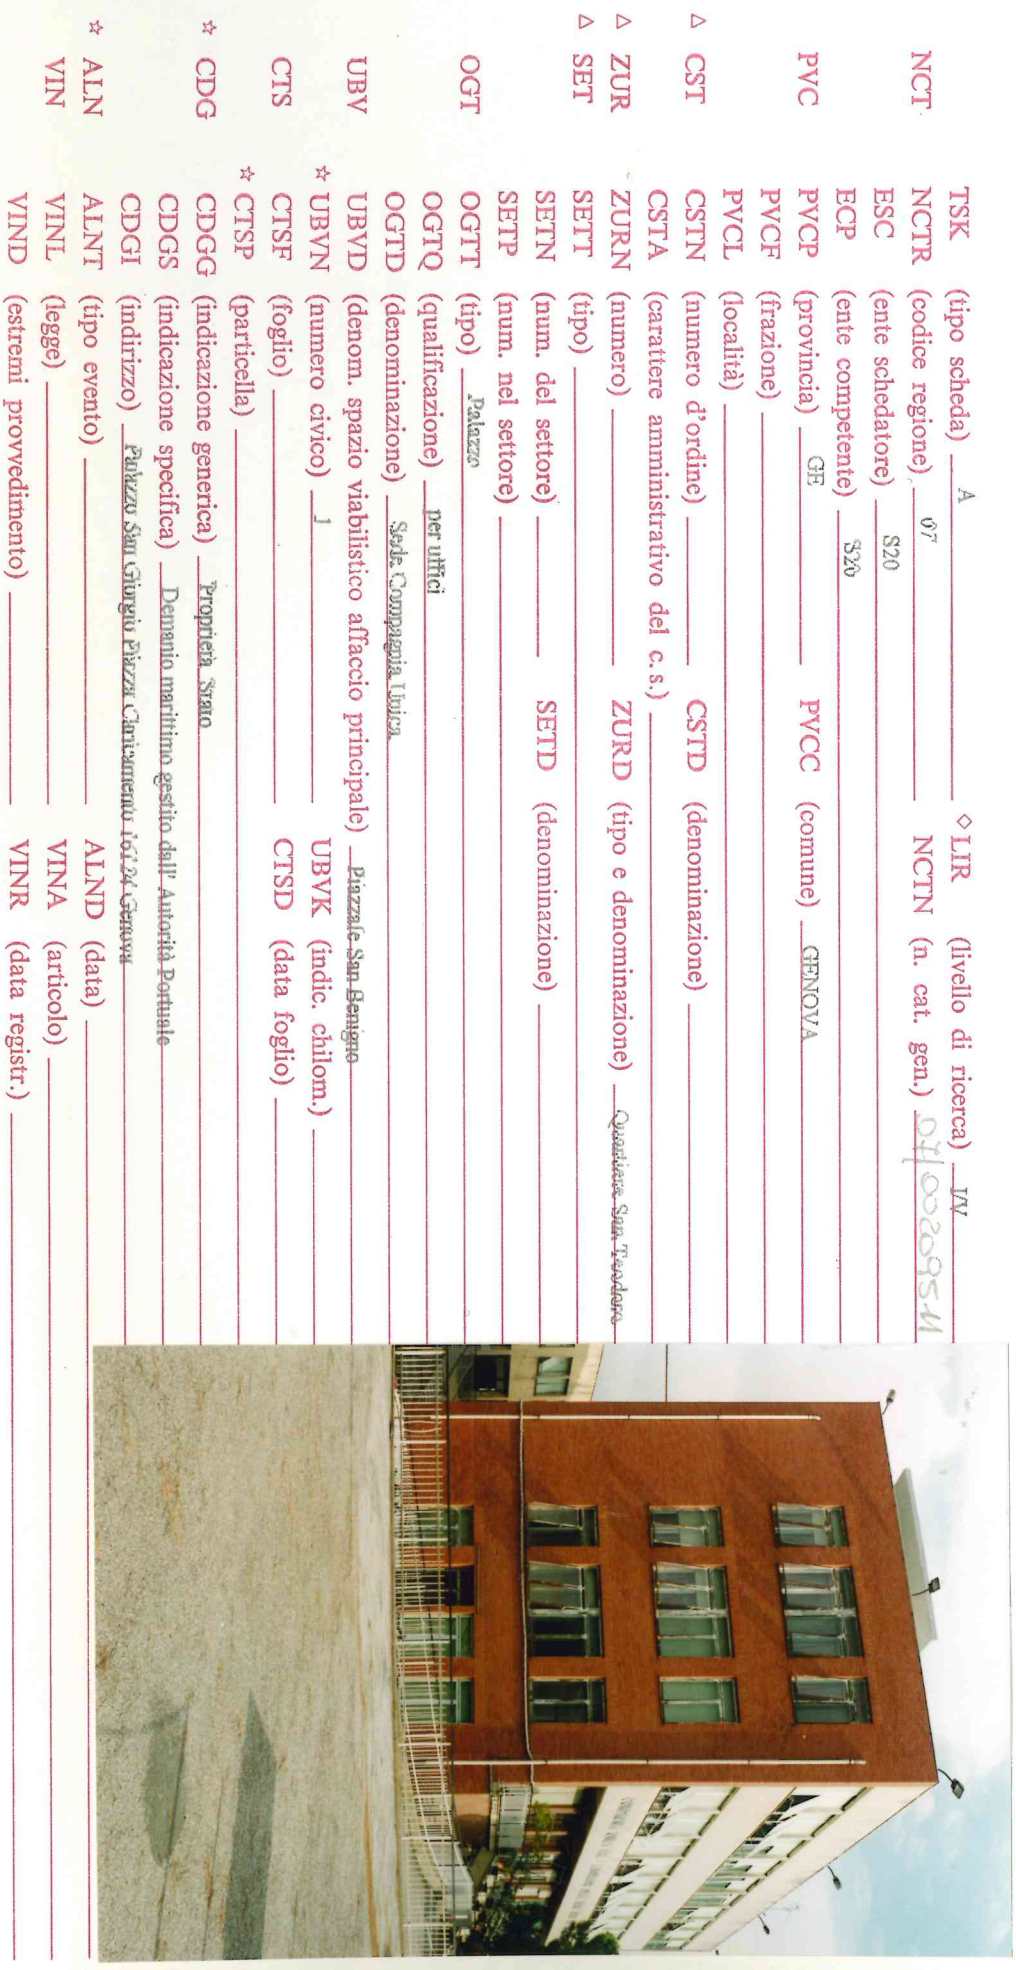 TSK (tipo scheda) A ◇ LIR (livello di ricerca) I/V
NCT NCTR (codice regione) 07 NCTN (n. cat. gen.) 07/00209511
ESC (ente schedatore) S20
ECP (ente competente) S20
PVC PVCP (provincia) GE PVCC (comune) GENOVA
PVCF (frazione)
PVCL (località)
△ CST CSTN (numero d'ordine) CSTD (denominazione)
CSTA (carattere amministrativo del c.s.)
△ ZUR ZURN (numero) ZURD (tipo e denominazione) Quartiere San Teodoro
△ SET SETT (tipo)
SETN (num. del settore) SETD (denominazione)
SETP (num. nel settore)
OGT OGTT (tipo) Palazzo
OGTQ (qualificazione) per uffici
OGTD (denominazione) Sede Compagnia Unica
UBV UBVD (denom. spazio viabilistico affaccio principale) Piazzale San Benigno
☆ UBVN (numero civico) 1 UBVK (indic. chilom.)
CTS CTSF (foglio) CTSD (data foglio)
☆ CTSP (particella)
☆ CDG CDGG (indicazione generica) Proprietà Stato
CDGS (indicazione specifica) Demanio marittimo gestito dall' Autorità Portuale
CDGI (indirizzo) Palazzo San Giorgio Piazza Caricamento 16124 Genova
☆ ALN ALNT (tipo evento) ALND (data)
VIN VINL (legge) VINA (articolo)
VIND (estremi provvedimento) VINR (data registr.)